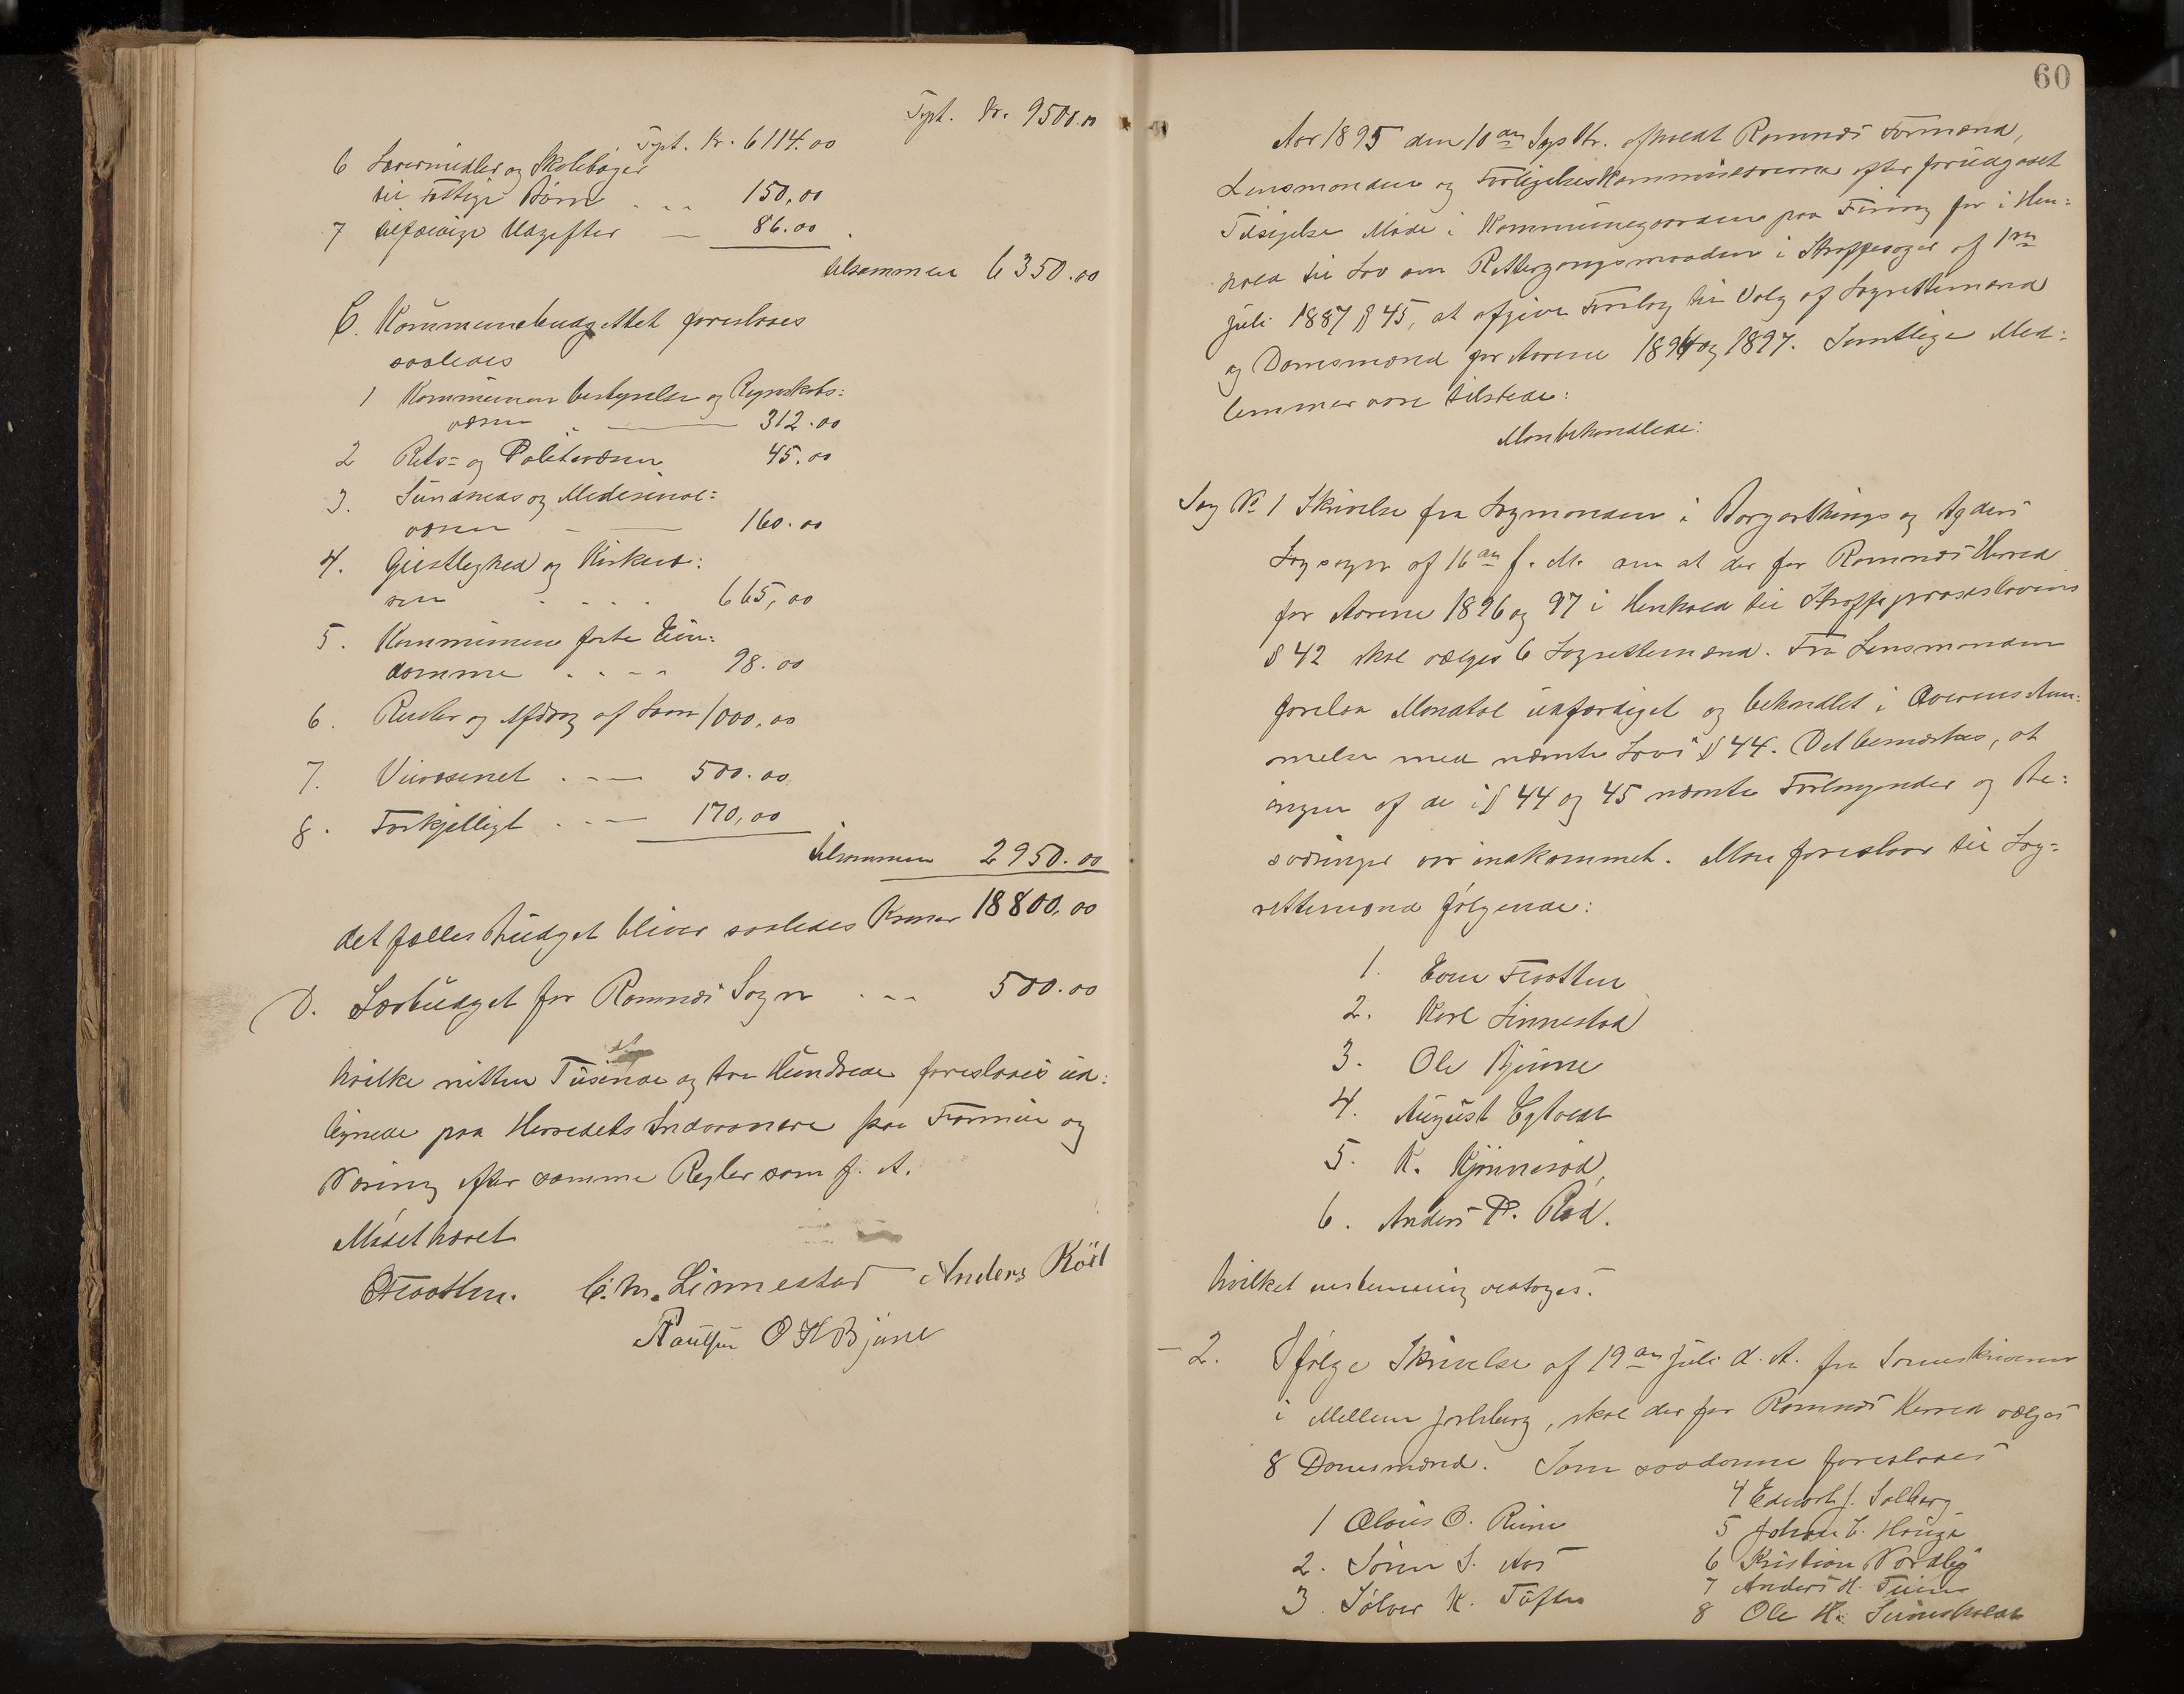 Tpt. Kr. 9500.00
Tpt. Kr. 6114.00
6 Lærermidler og Skolebøger
til Fattige Børn 150,00
7 tilfældige Udgifter 86.00
tilsammen 6350.00
C. Kommunebudgettet foreslaaes
saaledes
1 Kommunens bestyrelse og Regnskabs=
væsen 312.00
2 Rets= og Politivæsen 45.00
3. Sundheds og Medesinal=
væsen 160.00
4. Geistlighed og Kirkevæ=
sen 665,00
5. Kommunens faste Ein=
domme 98.00
6. Renter og Afdrag af Laan 1000,00
7. Veivæsenet 500.00
8. Forskjelligt 170,00
tilsammen 2950.00
det fælles Budget bliver saaledes Kroner 18800,00
D. Særbudget for Ramnæs Sogn 500.00
hvilke nitten Tusinde og tre Hundrede foreslaaes ud=
lignede paa Herredets Indvaanere paa Formue og
Næring efter samme Regler som f. A.
Mødet hævet
E Traathen. C. M. Linnestad Anders Röd
Paulsen O H Bjune
60
Aar 1895 den 10de Septbr. afholdt Ramnæs Formænd,
Lensmanden og Forligelseskommissærerne efter forudgaaet
Tilsigelse Møde i Kommunegaarden paa Firing for i Hen=
hold til Lov om Rettergangsmaaden i Straffesager af 1ste
Juli 1887 § 45, at afgive Forslag til Valg af Lagrettemænd
og Domsmænd for Aarene 1896 og 1897. Samtlige Med=
lemmer vare tilstede:
Man behandlede:
Sag No 1 Skrivelse fra Lagmanden i Borgarthings og Agders
Lagsogn af 16de f. M. om at der for Ramnæs Herred
for Aarene 1896 og 97 i Henhold til Straffeprocesslovens
§ 42 skal vælges 6 Lagrettemænd. Fra Lensmanden
forelaa Mandtal udfærdiget og behandlet i Overenstem=
melse med nævnte Lovs § 44. Det bemærkes, at
ingen af de i § 44 og 45 nævnte Forlangender og Be=
sværinger var indkommet. Man foreslaar til Lag=
rettemænd følgende:
1. Even Traathen
2. Karl Linnestad
3. Ole Bjune
4. August Egtvedt
5. K. Kjønnerød,
6. Anders P. Rød.
hvilket enstemmig vedtoges.
— 2. Ifølge Skrivelse af 19de Juli d. A. fra Sorenskriveren
i Mellem Jarlsberg, skal der for Ramnæs Herred vælges
8 Domsmænd. Som saadanne foreslaaes
1 Olaus O. Riine
2. Søren S. Aas
3. Sølver K. Tøften
4 Edvart J. Solberg
5 Johan C. Hauge
6 Kristian Nordby
7 Anders H.
8 Ole H.